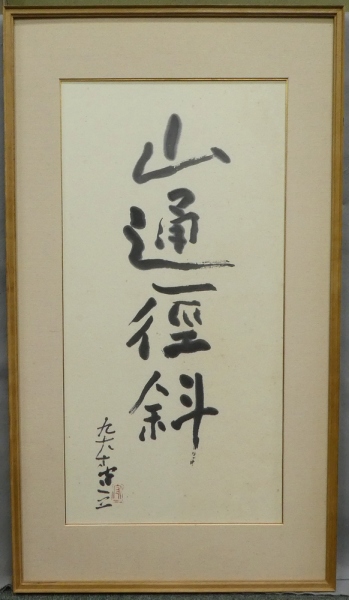 山通一徑斜
九六才